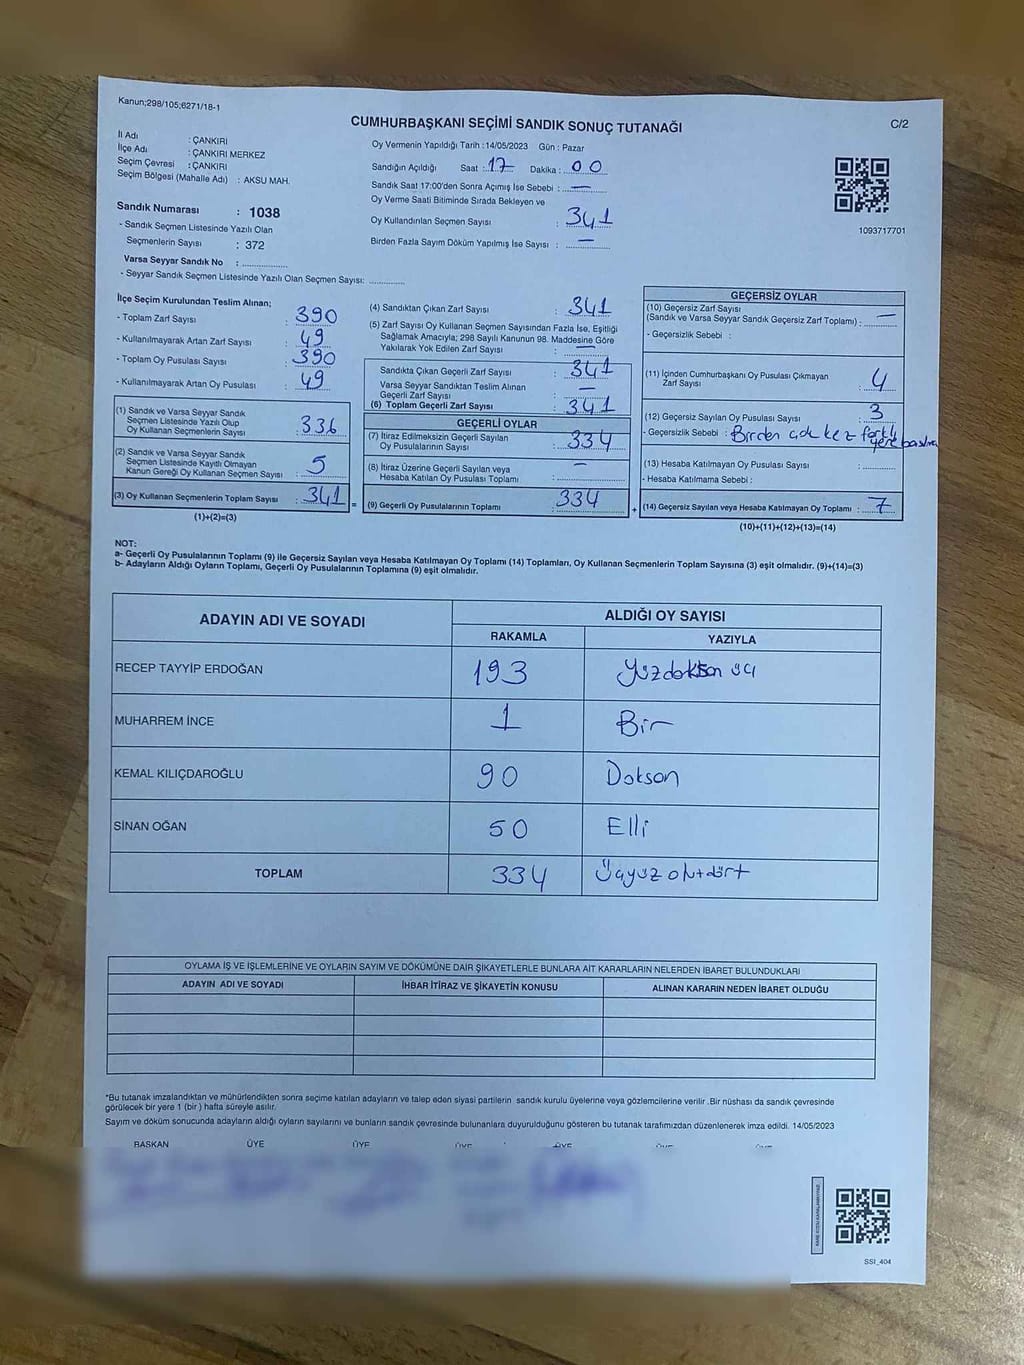 Kanun;298/105;6271/18-1
CUMHURBAŞKANI SEÇİMİ SANDIK SONUÇ TUTANAĞI
C/2
İl Adı : ÇANKIRI
İlçe Adı : ÇANKIRI MERKEZ
Seçim Çevresi : ÇANKIRI
Seçim Bölgesi (Mahalle Adı) : AKSU MAH.
Sandık Numarası : 1038
- Sandık Seçmen Listesinde Yazılı Olan
Seçmenlerin Sayısı : 372
Varsa Seyyar Sandık No :
- Seyyar Sandık Seçmen Listesinde Yazılı Olan Seçmen Sayısı:
Oy Vermenin Yapıldığı Tarih :14/05/2023 Gün : Pazar
Sandığın Açıldığı Saat : 17 Dakika : 00
Sandık Saat 17:00'den Sonra Açımış İse Sebebi : —
Oy Verme Saati Bitiminde Sırada Bekleyen ve
Oy Kullandırılan Seçmen Sayısı : 341
Birden Fazla Sayım Döküm Yapılmış İse Sayısı : —
1093717701
İlçe Seçim Kurulundan Teslim Alınan;
- Toplam Zarf Sayısı : 390
- Kullanılmayarak Artan Zarf Sayısı : 49
- Toplam Oy Pusulası Sayısı : 390
- Kullanılmayarak Artan Oy Pusulası : 49
(1) Sandık ve Varsa Seyyar Sandık
Seçmen Listesinde Yazılı Olup
Oy Kullanan Seçmenlerin Sayısı : 336
(2) Sandık ve Varsa Seyyar Sandık
Seçmen Listesinde Kayıtlı Olmayan
Kanun Gereği Oy Kullanan Seçmen Sayısı : 5
(3) Oy Kullanan Seçmenlerin Toplam Sayısı : 341
(1)+(2)=(3)
=
(4) Sandıktan Çıkan Zarf Sayısı : 341
(5) Zarf Sayısı Oy Kullanan Seçmen Sayısından Fazla İse, Eşitliği
Sağlamak Amacıyla; 298 Sayılı Kanunun 98. Maddesine Göre
Yakılarak Yok Edilen Zarf Sayısı : —
Sandıkta Çıkan Geçerli Zarf Sayısı : 341
Varsa Seyyar Sandıktan Teslim Alınan
Geçerli Zarf Sayısı : —
(6) Toplam Geçerli Zarf Sayısı : 341
GEÇERLİ OYLAR
(7) İtiraz Edilmeksizin Geçerli Sayılan
Oy Pusulalarının Sayısı : 334
(8) İtiraz Üzerine Geçerli Sayılan veya
Hesaba Katılan Oy Pusulası Toplamı : —
(9) Geçerli Oy Pusulalarının Toplamı : 334
+
GEÇERSİZ OYLAR
(10) Geçersiz Zarf Sayısı
(Sandık ve Varsa Seyyar Sandık Geçersiz Zarf Toplamı) : —
- Geçersizlik Sebebi :
(11) İçinden Cumhurbaşkanı Oy Pusulası Çıkmayan
Zarf Sayısı : 4
(12) Geçersiz Sayılan Oy Pusulası Sayısı : 3
- Geçersizlik Sebebi : Birden çok kez farklı yere basılma
(13) Hesaba Katılmayan Oy Pusulası Sayısı :
- Hesaba Katılmama Sebebi :
(14) Geçersiz Sayılan veya Hesaba Katılmayan Oy Toplamı : 7
(10)+(11)+(12)+(13)=(14)
NOT:
a- Geçerli Oy Pusulalarının Toplamı (9) ile Geçersiz Sayılan veya Hesaba Katılmayan Oy Toplamı (14) Toplamları, Oy Kullanan Seçmenlerin Toplam Sayısına (3) eşit olmalıdır. (9)+(14)=(3)
b- Adayların Aldığı Oyların Toplamı, Geçerli Oy Pusulalarının Toplamına (9) eşit olmalıdır.
ADAYIN ADI VE SOYADI ALDIĞI OY SAYISI
RAKAMLA YAZIYLA
RECEP TAYYİP ERDOĞAN 193 Yüzdoksan üç
MUHARREM İNCE 1 Bir
KEMAL KILIÇDAROĞLU 90 Doksan
SİNAN OĞAN 50 Elli
TOPLAM 334 Üçyüz otuzdört
OYLAMA İŞ VE İŞLEMLERİNE VE OYLARIN SAYIM VE DÖKÜMÜNE DAİR ŞİKAYETLERLE BUNLARA AİT KARARLARIN NELERDEN İBARET BULUNDUKLARI
ADAYIN ADI VE SOYADI İHBAR İTİRAZ VE ŞİKAYETİN KONUSU ALINAN KARARIN NEDEN İBARET OLDUĞU
*Bu tutanak imzalandıktan ve mühürlendikten sonra seçime katılan adayların ve talep eden siyasi partilerin sandık kurulu üyelerine veya gözlemcilerine verilir .Bir nüshası da sandık çevresinde
görülecek bir yere 1 (bir ) hafta süreyle asılır.
Sayım ve döküm sonucunda adayların aldığı oyların sayılarını ve bunların sandık çevresinde bulunanlara duyurulduğunu gösteren bu tutanak tarafımızdan düzenlenerek imza edildi. 14/05/2023
BAŞKAN ÜYE ÜYE ÜYE ÜYE
SSI_404